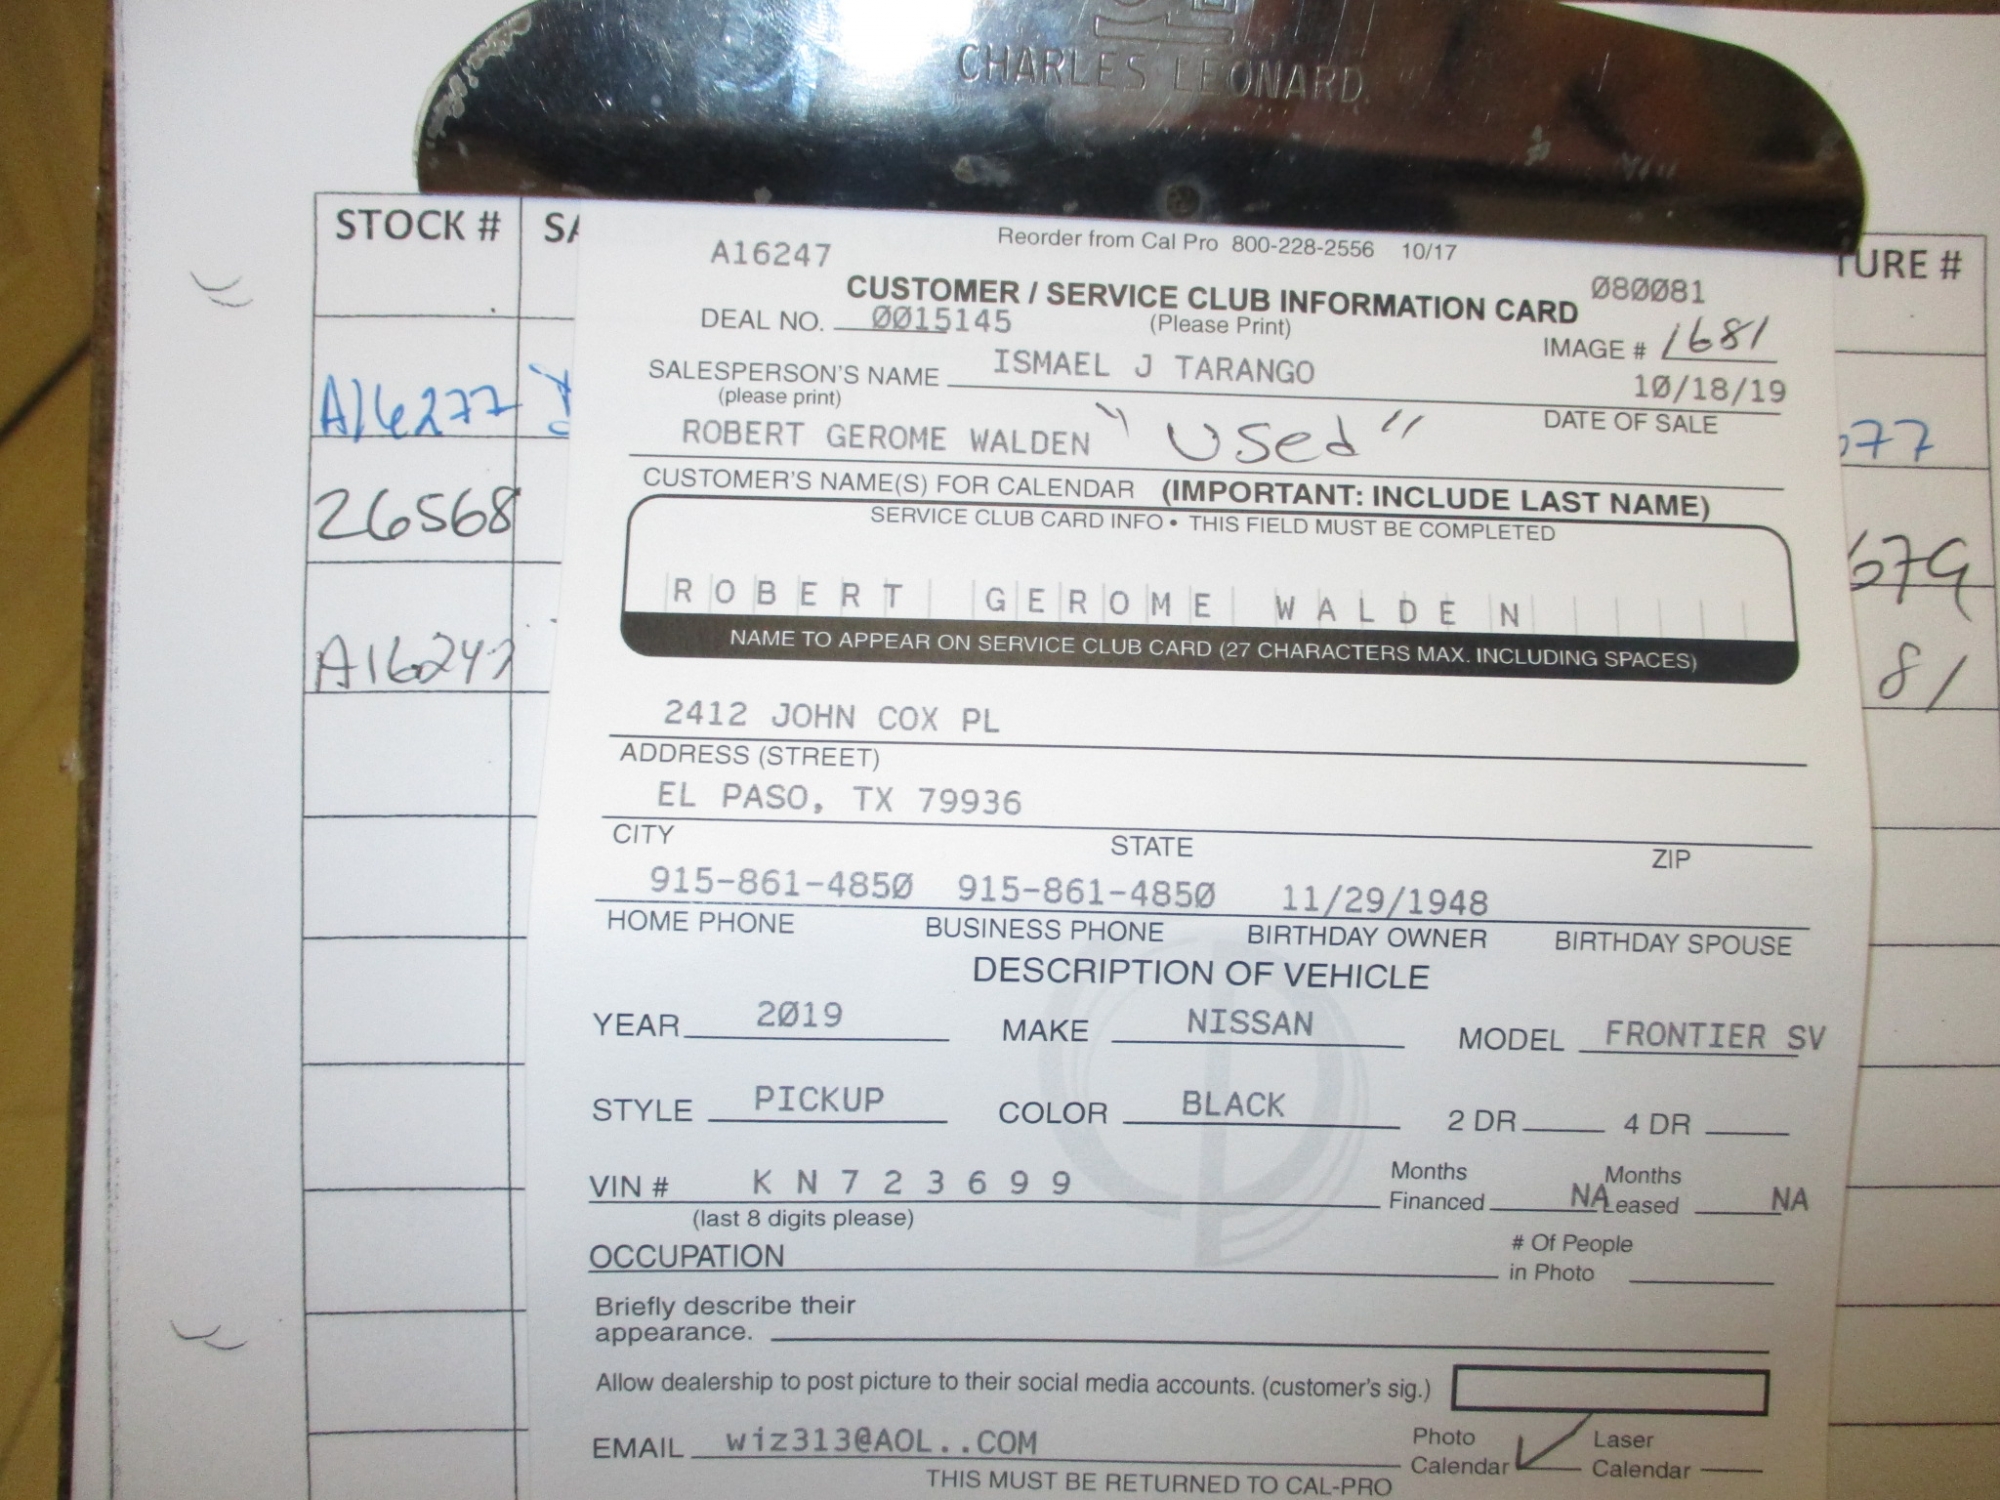 CHARLES LEONARD
STOCK #
A16277
26568
A16247
Reorder from Cal Pro 800-228-2556 10/17
A16247
080081
CUSTOMER / SERVICE CLUB INFORMATION CARD
DEAL NO. 0015145 (Please Print)
IMAGE # 1681
SALESPERSON'S NAME ISMAEL J TARANGO
(please print)
10/18/19
DATE OF SALE
ROBERT GEROME WALDEN "Used"
CUSTOMER'S NAME(S) FOR CALENDAR (IMPORTANT: INCLUDE LAST NAME)
SERVICE CLUB CARD INFO • THIS FIELD MUST BE COMPLETED
ROBERT GEROME WALDEN
NAME TO APPEAR ON SERVICE CLUB CARD (27 CHARACTERS MAX. INCLUDING SPACES)
2412 JOHN COX PL
ADDRESS (STREET)
EL PASO, TX 79936
CITY STATE ZIP
915-861-4850 915-861-4850 11/29/1948
HOME PHONE BUSINESS PHONE BIRTHDAY OWNER BIRTHDAY SPOUSE
DESCRIPTION OF VEHICLE
YEAR 2019 MAKE NISSAN MODEL FRONTIER SV
STYLE PICKUP COLOR BLACK 2 DR 4 DR
VIN # K N 7 2 3 6 9 9 Months Financed NA Months Leased NA
(last 8 digits please)
OCCUPATION # Of People in Photo
Briefly describe their
appearance.
Allow dealership to post picture to their social media accounts. (customer's sig.)
EMAIL wiz313@AOL..COM Photo Calendar Laser Calendar
THIS MUST BE RETURNED TO CAL-PRO
TURE #
77
679
81